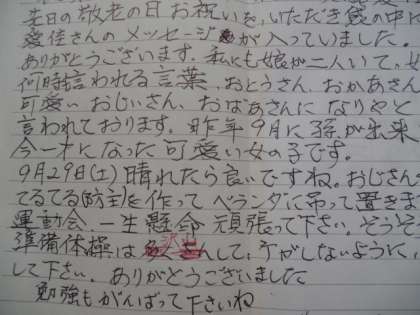 先日の敬老の日お祝いを、いただき袋の中に
愛佳さんのメッセージが入っていました。
ありがとうございます。私にも娘が二人いて、
何時言われる言葉、おとうさん、おかあさん
可愛いおじいさん、おばあさんになりやと
言われております。昨年9月に孫が出来
今一才になった可愛い女の子です。
9月29日(土)晴れたら良いですね。おじさん
てるてる(防主)を作ってベランダに吊って置きま
運動会、一生懸命頑張って下さい。そうそう
準備体操は沢山して、ケガしないように、
して下さい。ありがとうございました
勉強もがんばって下さいね